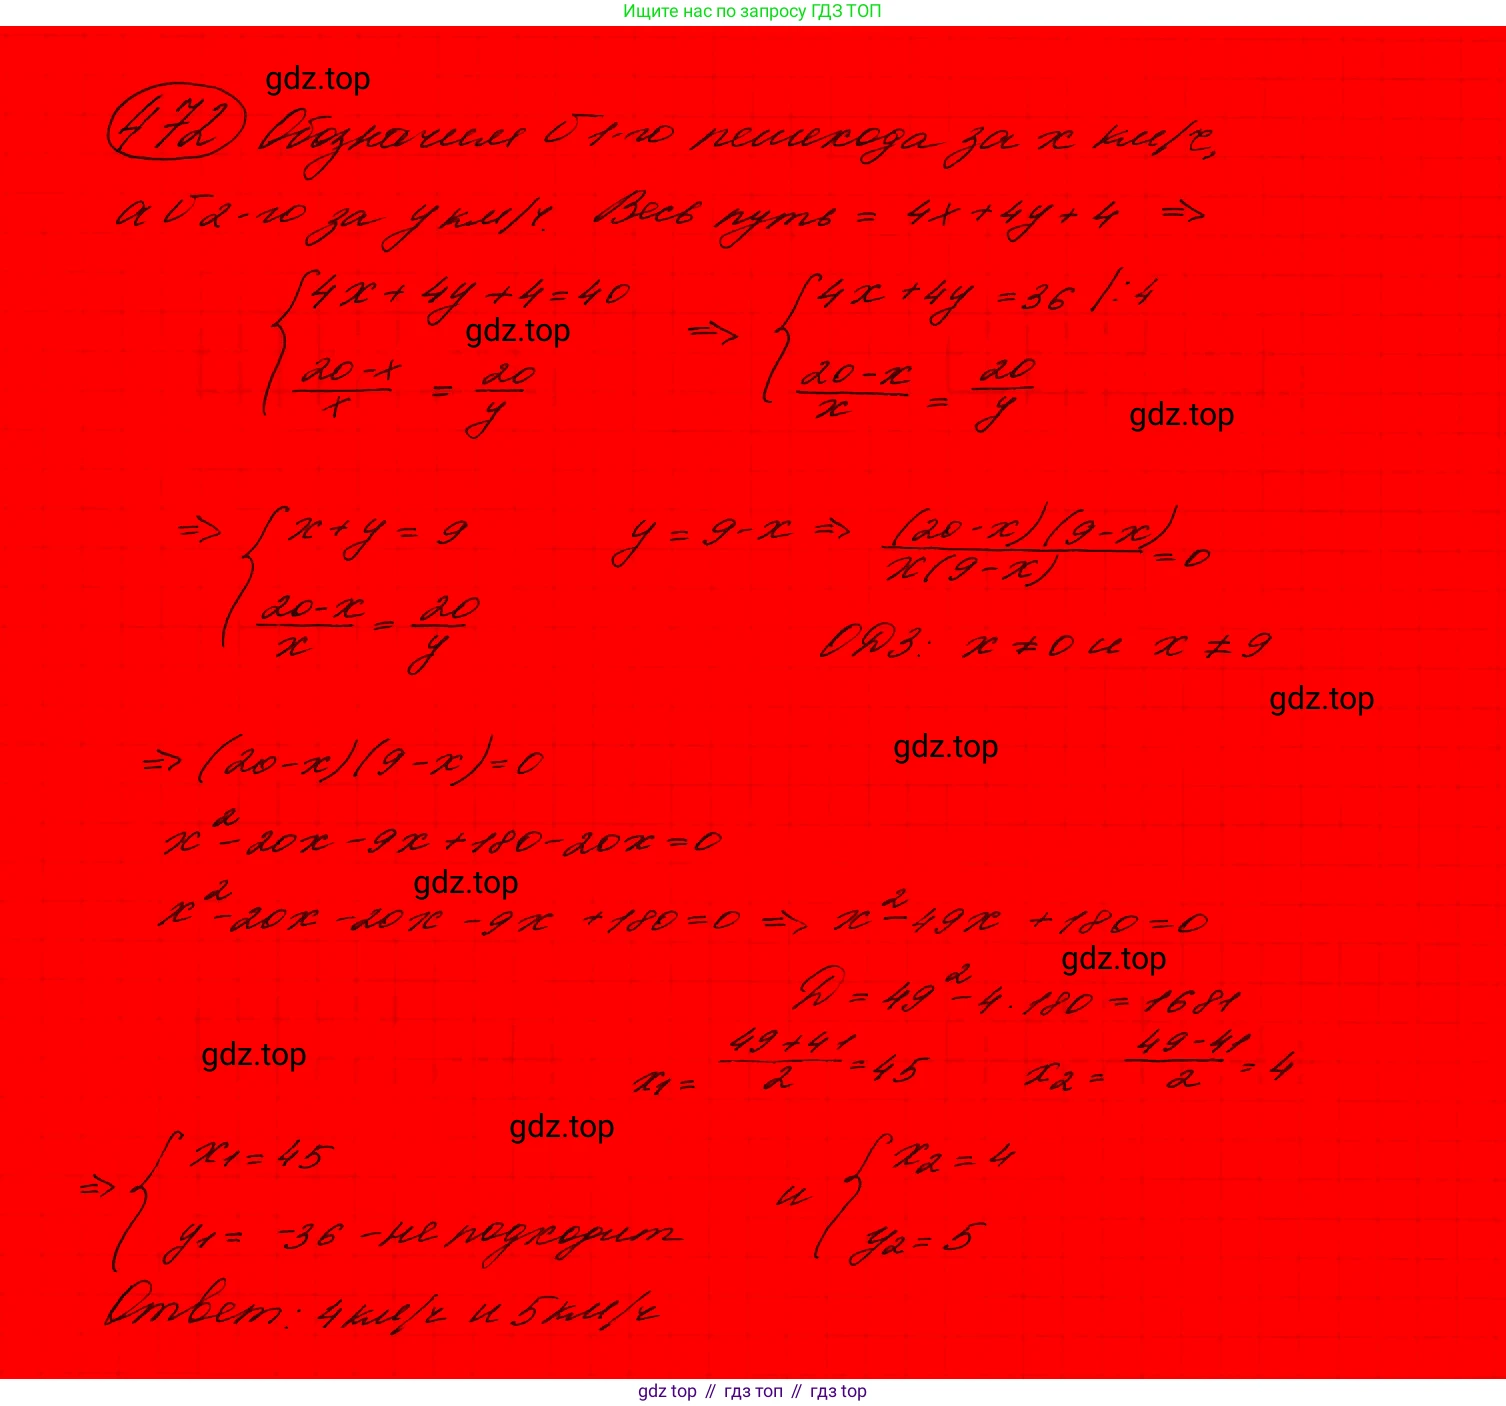 Ищите нас по запросу ГДЗ ТОП
gdz.top
472 Обозначим v 1-го пешехода за x км/ч,
а v 2-го за y км/ч. Весь путь = 4x+4y+4 =>
{4x+4y+4=40 => {4x+4y=36 |:4
gdz.top
(20-x)/x = 20/y (20-x)/x = 20/y
gdz.top
=> {x+y=9 y=9-x => (20-x)(9-x)/x(9-x) =0
(20-x)/x = 20/y ОДЗ: x≠0 и x≠9
gdz.top
gdz.top
=> (20-x)(9-x)=0
x²-20x-9x+180-20x=0
gdz.top
x²-20x-20x-9x+180=0 => x²-49x+180=0
gdz.top
Д=49²-4·180=1681
gdz.top
x1= (49+41)/2 =45 x2= (49-41)/2 =4
gdz.top
=> {x1=45 и {x2=4
y1= -36 -не подходит y2=5
Ответ: 4км/ч и 5км/ч
gdz top // гдз топ // гдз top